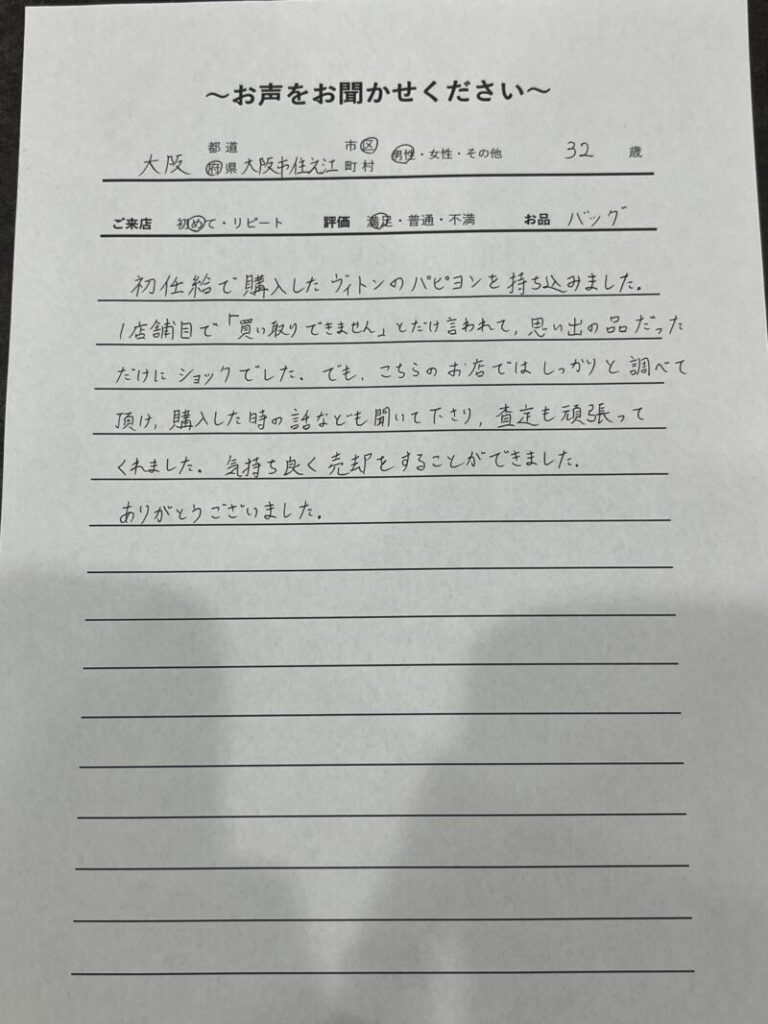 ～お声をお聞かせください～
大阪 都道府県 大阪市住之江 市区町村 男性・女性・その他 32 歳
ご来店 初めて・リピート 評価 満足・普通・不満 お品 バッグ
初任給で購入したヴィトンのパピヨンを持ち込みました。
1店舗目で「買い取りできません」とだけ言われて、思い出の品だった
だけにショックでした。でも、こちらのお店ではしっかりと調べて
頂け、購入した時の話なども聞いて下さり、査定も頑張って
くれました。気持ち良く売却をすることができました。
ありがとうございました。